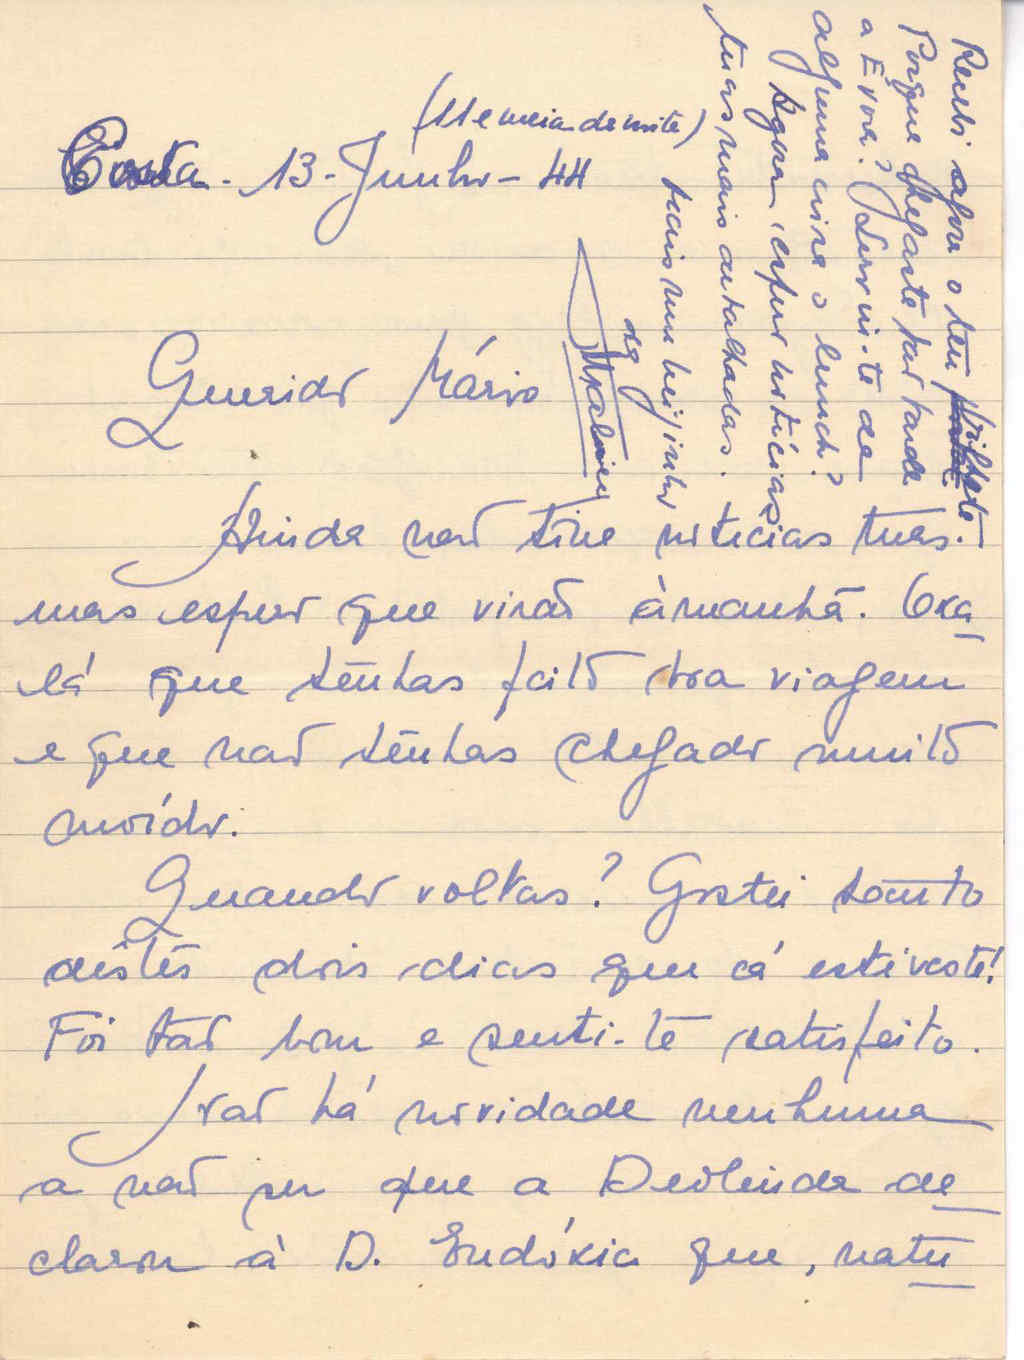 (11 e meia da noite)
Costa - 13 - Junho - 44
Querido Mário
Ainda não tive notícias tuas.
mas espero que virão àmanhã. Oxa
lá que tenhas feito boa viagem
e que não tenhas chegado muito
moído.
Quando voltas? Gostei tanto
dêstes dois dias que cá estiveste!
Foi tão bom e senti-te satisfeito.
Não há novidade nenhuma
a não ser que a Deolinda de
clarou à D. Eudóxia que, natu
Recebi agora o teu postal
bilhete.
Porque chegaste tão tarde
a Evora? Serviu-te de
alguma coisa o lunch?
Agora, espero notícias
tuas mais detalhadas.
mais um beijinho
da